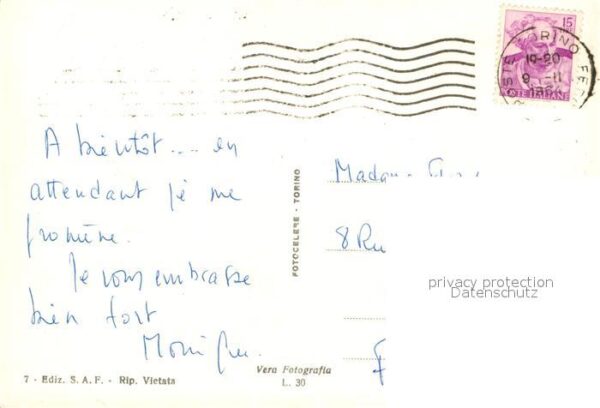 15
TORINO FER
19-20
9-11
1964
POSTE ITALIANE
A bientôt .... en
attendant je me
promène.
Je vous embrasse
bien fort
Monique.
FOTOCELERE - TORINO
Madame
8 Ru
privacy protection
Datenschutz
7 - Ediz. S. A. F. - Rip. Vietata
Vera Fotografia
L. 30